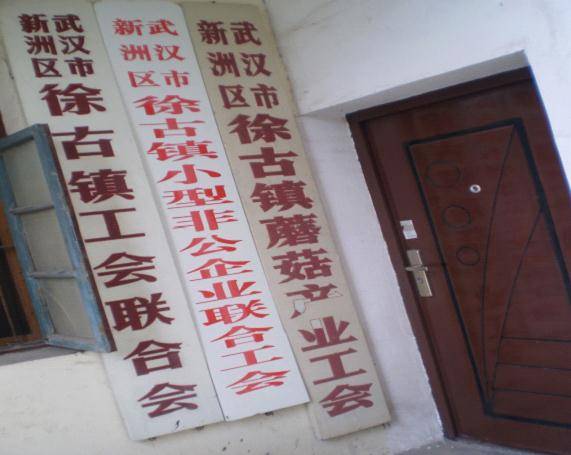 武汉市新洲区徐古镇工会联合会
武汉市新洲区徐古镇小型非公企业联合工会
武汉市新洲区徐古镇蘑菇产业工会